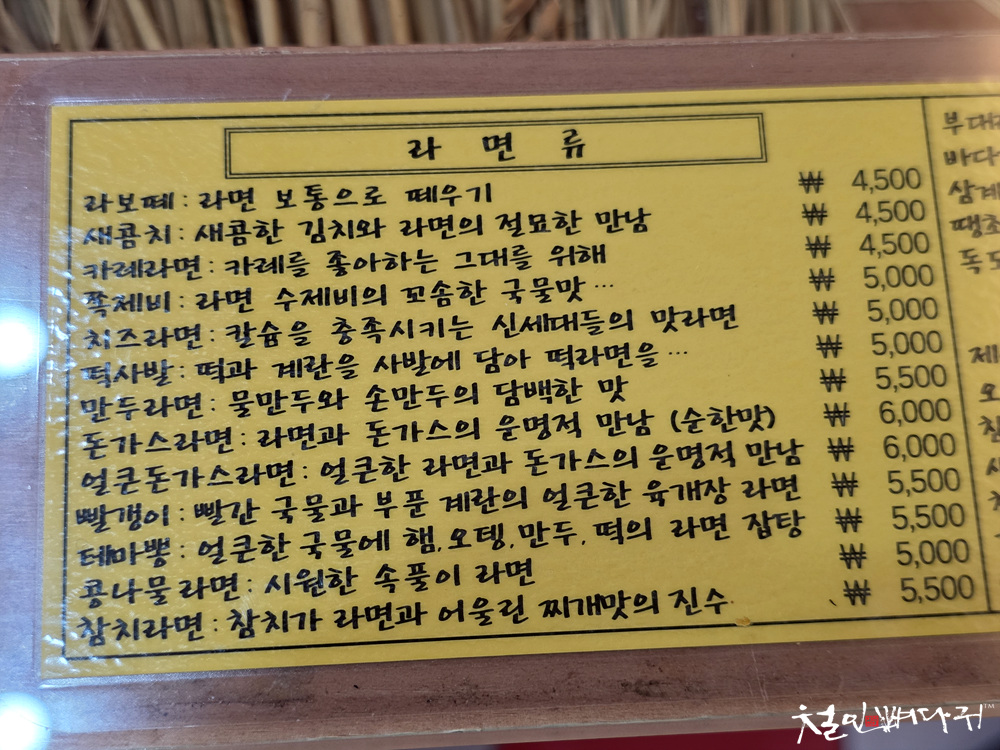 라면류
라보떼 : 라면 보통으로 떼우기 ₩ 4,500
새콤치 : 새콤한 김치와 라면의 절묘한 만남 ₩ 4,500
카레라면 : 카레를 좋아하는 그대를 위해 ₩ 4,500
쪽체비 : 라면 수제비의 꼬솜한 국물맛… ₩ 5,000
치즈라면 : 칼슘을 충족시키는 신세대들의 맛라면 ₩ 5,000
떡사발 : 떡과 계란을 사발에 담아 떡라면을… ₩ 5,000
만두라면 : 물만두와 손만두의 담백한 맛 ₩ 5,500
돈가스라면 : 라면과 돈가스의 운명적 만남 (순한맛) ₩ 6,000
얼큰돈가스라면 : 얼큰한 라면과 돈가스의 운명적 만남 ₩ 6,000
빨갱이 : 빨간 국물과 부푼 계란의 얼큰한 육개장 라면 ₩ 5,500
테마뽕 : 얼큰한 국물에 햄,오뎅,만두,떡의 라면 잡탕 ₩ 5,500
콩나물라면 : 시원한 속풀이 라면 ₩ 5,000
참치라면 : 참치가 라면과 어울린 찌개맛의 진수 ₩ 5,500
부대
바다
삼계
땡초
독도
제
오
철인뼈다귀™